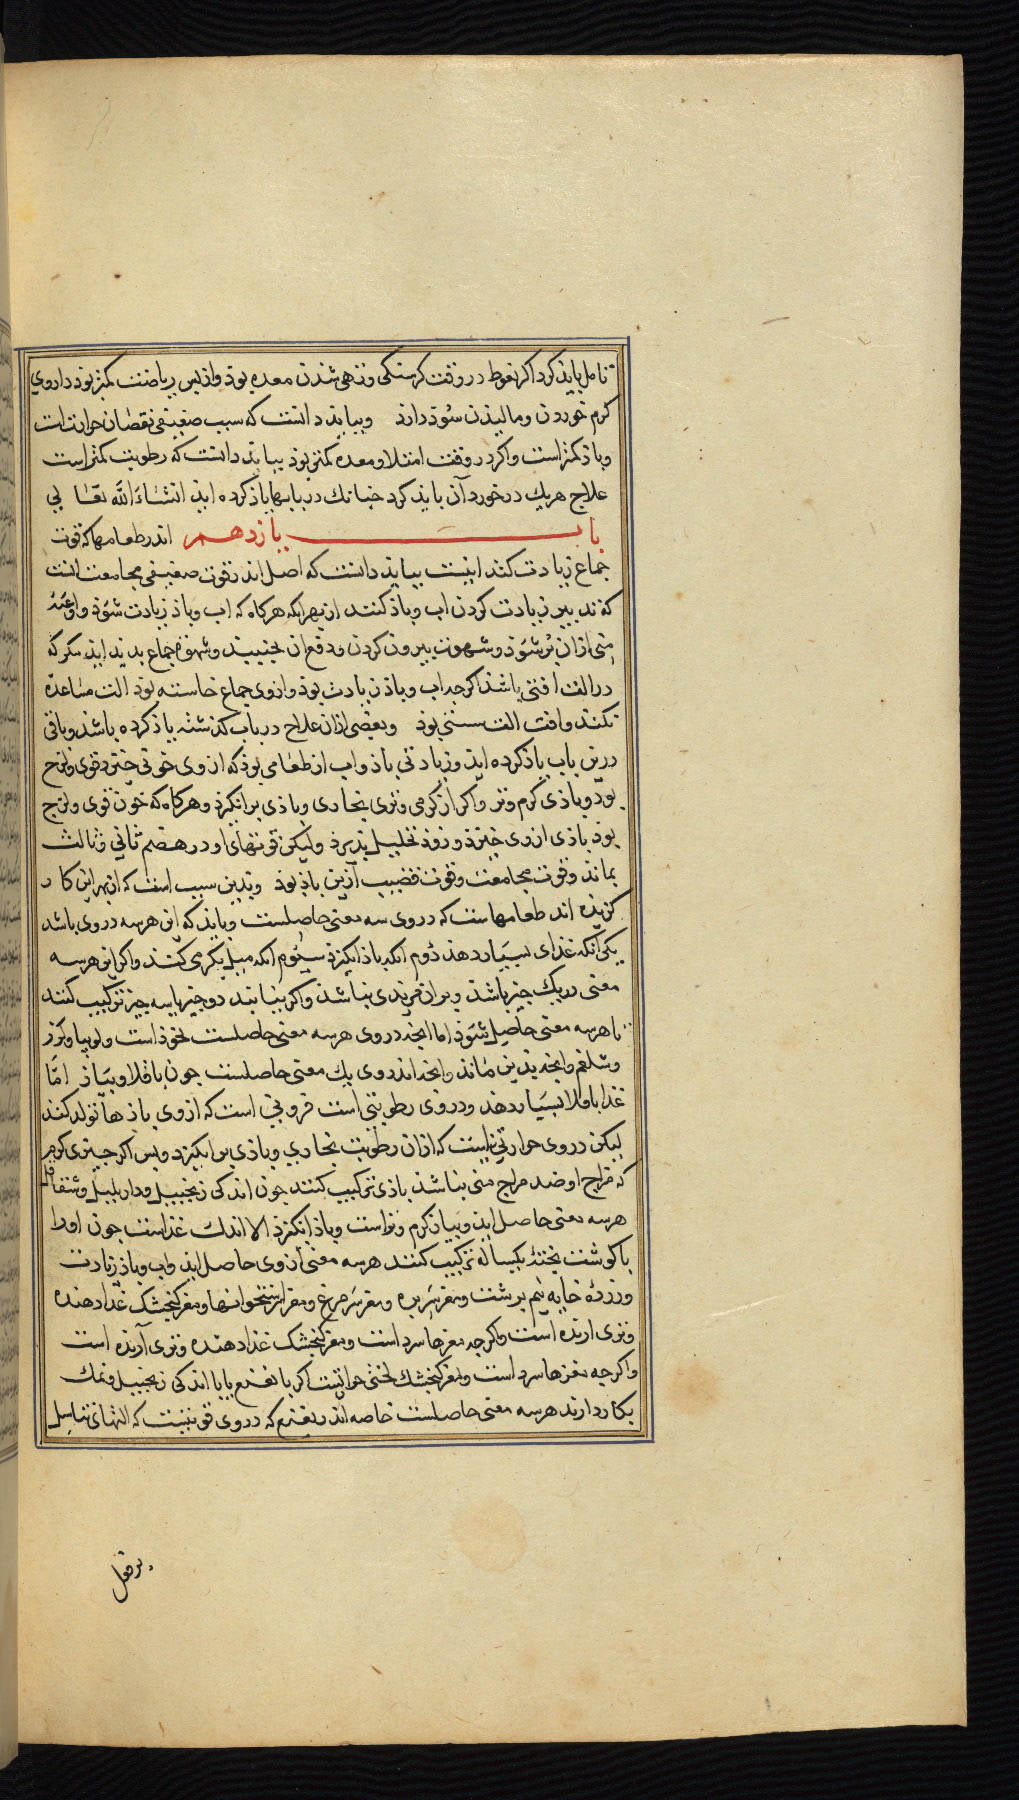 تامل باید کرد اکر نعوظ در وقت کرسنکی وتهی شدن معده بوذ واز پس ریاضت کمتر بوذ داروی
کرم خوردن ومالیدن سوذ دارذ وبباید دانست که سبب ضعیفی نقصان حرارت است
وباذ کمتر است واکر در وقت امتلا ومعده کمتر بوذ بباید دانست که رطوبت کمتر است
علاج هر یک در خورد آن باید کرد چنانک در بابها یاذ کرده ایذ انشاء الله تعالی
باب یازدهم اندر طعامها که قوت
جماع زیادت کند اینست بباید دانست که اصل اندر قوت ضعیفی مجامعت انست
که تدبیر زیادت کردن اب وباذ کنند از بهر انکه هرکاه که اب وباذ زیادت شوذ واوعیه
منی ازان پر شوذ وشهوت بیرون کردن ودفع ان بجنبد وشهوة جماع بدید ایذ مکر که
در الت افتی باشذ اکر چه اب وباذ زیادت بوذ وارزوی جماع خاسته بوذ الت مساعدة
نکند وافت الت سستی بوذ وبعضی ازان علاج در باب کذشته یاذ کرده باشد وباقی
درین باب یاذ کرده ایذ وزیادتی باذ واب از طعامی بوذ که ازوی خونی خیزد قوی ولزج
بود وباذی کرم وتر واکر از کرمی وتری بخاری وباذی برانکیزد وهرکاه که خون قوی ولزج
بوذ باذی ازوی خیزد وزوذ تحلیل نپذیرد ولیکن قوتهای او در هضم ثانی وثالث
بماند وقوت مجامعت وقوت قضیب ازین باذ بوذ وبدین سبب است که از بهر این کار
کزیده اند طعامهاست که در وی سه معنی حاصلست وباید که این هر سه در وی باشد
یکی انکه غذای بسیار دهد دوم انکه باذ انکیزد سیوم انکه میل بکرمی کند واکر این هر سه
معنی در یک چیز باشد بر ان مزیدی نباشد واکر نیابند دو چیز یا سه چیز ترکیب کنند
تا هر سه معنی حاصل شوذ اما انچه در وی هر سه معنی حاصلست نخوذ است ولوبیا وکزر
وشلغم وانچه بدین ماند وانچه اندر وی یک معنی حاصلست چون باقلا وپیاز اما
غذا باقلا بسیار دهد ودر وی رطوبتی است فزونی است که ازوی باذها تولد کند
لیکن در وی حرارتی نیست که ازان رطوبت بخاری وباذی برانکیزد وپس اکر چیزی کرم
که مزاج او ضد مزاج منی نباشد باذی ترکیب کنند چون اندکی زنجبیل ودارپلپل وشقاقل
هر سه معنی حاصل ایذ وپیاز کرم وتر است وباذ انکیزد الا اندک غذاست چون اورا
با کوشت پخته یکساله ترکیب کنند هر سه معنی ازوی حاصل ایذ واب وباذ زیادت
وزرده خایه نیم برشت ومغز سر بره ومغز سر مرغ ومغز استخوانها ومغز کنجشک غذا دهنده
وتری ارنده است واکرچه مغزها سرد است ومغز کنجشک غذا دهنده وتری آرنده است
واکرچه مغزها سرد است ومغز کنجشک لختی حرارتیست اکر با نعنع یا با اندکی زنجبیل ونمک
بکار دارند هر سه معنی حاصلست خاصه اندر نعنع که در وی قوتیست که التهای تناسل